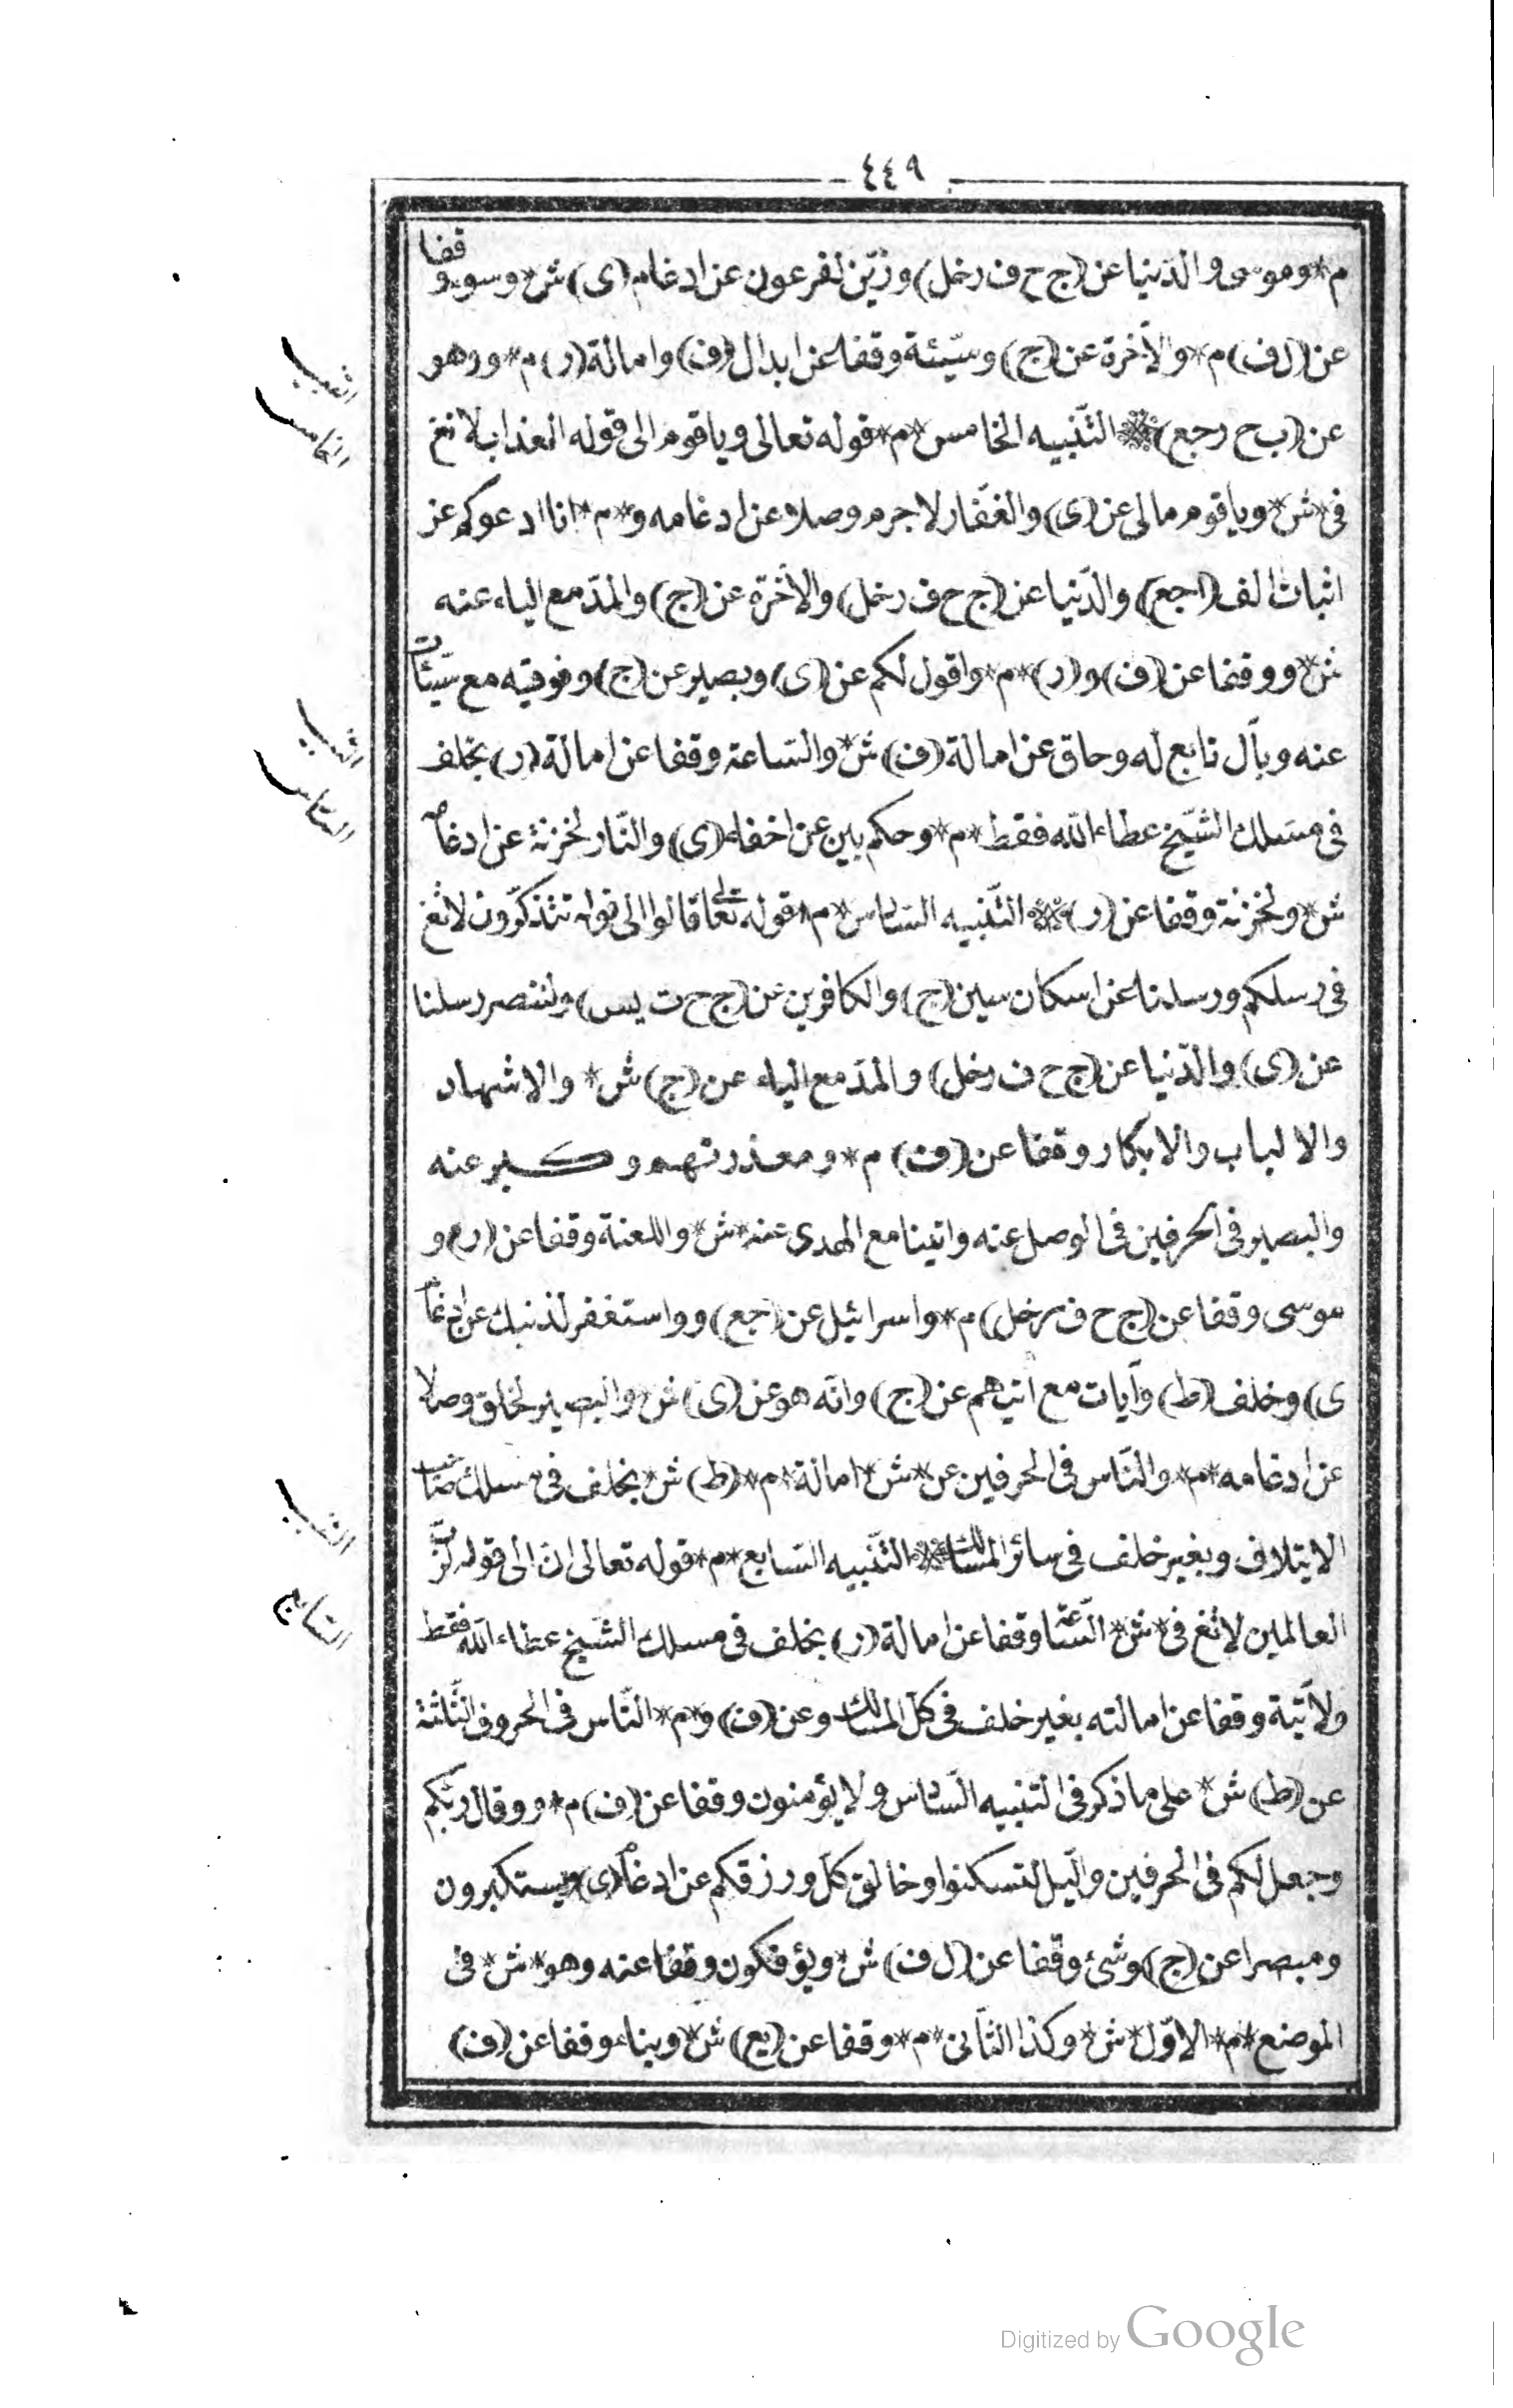 ٤٤٩
م* وموسى والدّنيا عن (ج ح ف رخل) وزيّن لفرعون عن ادغام (ى) ش* وسوء وقفا
عن (ل ف) م* والآخرة عن (ج) وسيّئة وقفا عن ابدال (ف) وامالة (ر) م* وهو
عن (ب ح رجع) * التّنبيه الخامس *م* قوله تعالى ويا قوم الى قوله العذاب لا تغ
فى *ش* ويا قوم مالى عن (ى) والغفّار لا جرم وصلا عن ادغامه و*م* انا ادعوكم عن
اثبات الف (اجع) والدّنيا عن (ج ح ف رخل) والآخرة عن (ج) والمدّ مع الياء عنه
ش* ووقفا عن (ف) و(ر) *م* واقول لكم عن (ى) وبصير عن (ج) وفوقيه مع سيّئات
عنه وبآل تابع له وحاق عن امالة (ف) ش* والسّاعة وقفا عن امالة (ر) بخلف
فى مسلك الشّيخ عطاء الله فقط *م* وحكم بين عن اخفاء (ى) والنّار لخزنة عن ادغام
ش* ولخزنة وقفا عن (ر) * التّنبيه السّادس *م* قوله تعالى قالوا الى قوله تتذكّرون لا تغ
فى رسلكم ورسلنا عن اسكان سين (ج) والكافرين عن (ج ح ت يس) ولننصر رسلنا
عن (ى) والدّنيا عن (ج ح ف رخل) والمدّ مع الياء عن (ج) ش* والاشهاد
والالباب والابكار وقفا عن (ف) م* ومعذرتهم وكبر عنه
والبصير فى الحرفين فى الوصل عنه واتينا مع الهدى عنه *ش* واللعنة وقفا عن (ر) و
موسى وقفا عن (ج ح ف رخل) م* واسرائيل عن (جع) وواستغفر لذنبك عن ادغام
ى) وخلف (ط) وآيات مع اتيهم عن (ج) وانّه هو عن (ى) ش* والبصير لخلق وصلا
عن ادغامه *م* والنّاس فى الحرفين عن *ش* امالة *م* (ط) ش* بخلف فى مسلك صاحب
الايتلاف وبغير خلف فى سائر المسالك * التّنبيه السّابع *م* قوله تعالى انّ الى قوله لربّ
العالمين لا تغ فى *ش* السّاعة وقفا عن امالة (ر) بخلف فى مسلك الشّيخ عطاء الله فقط
ولآتية وقفا عن امالته بغير خلف فى كلّ المسالك وعن (ف) و*م* النّاس فى الحروف الثّلثة
عن (ط) ش* على ما ذكر فى التنبيه السّادس ولا يؤمنون وقفا عن (ف) م* ووقال ربّكم
وجعل لكم فى الحرفين والّيل لتسكنوا وخالق كلّ ورزقكم عن ادغام (ى) ويستكبرون
ومبصرا عن (ج) وشئ وقفا عن (ل ف) ش* ويؤفكون وقفا عنه وهو *ش* فى
الموضع *م* الاوّل *ش* وكذا الثّانى *م* وقفا عن (يع) ش* وبناء وقفا عن (ف)
التنبيه
الخامس
التنبيه
السّادس
التنبيه
السّابع
Digitized by Google